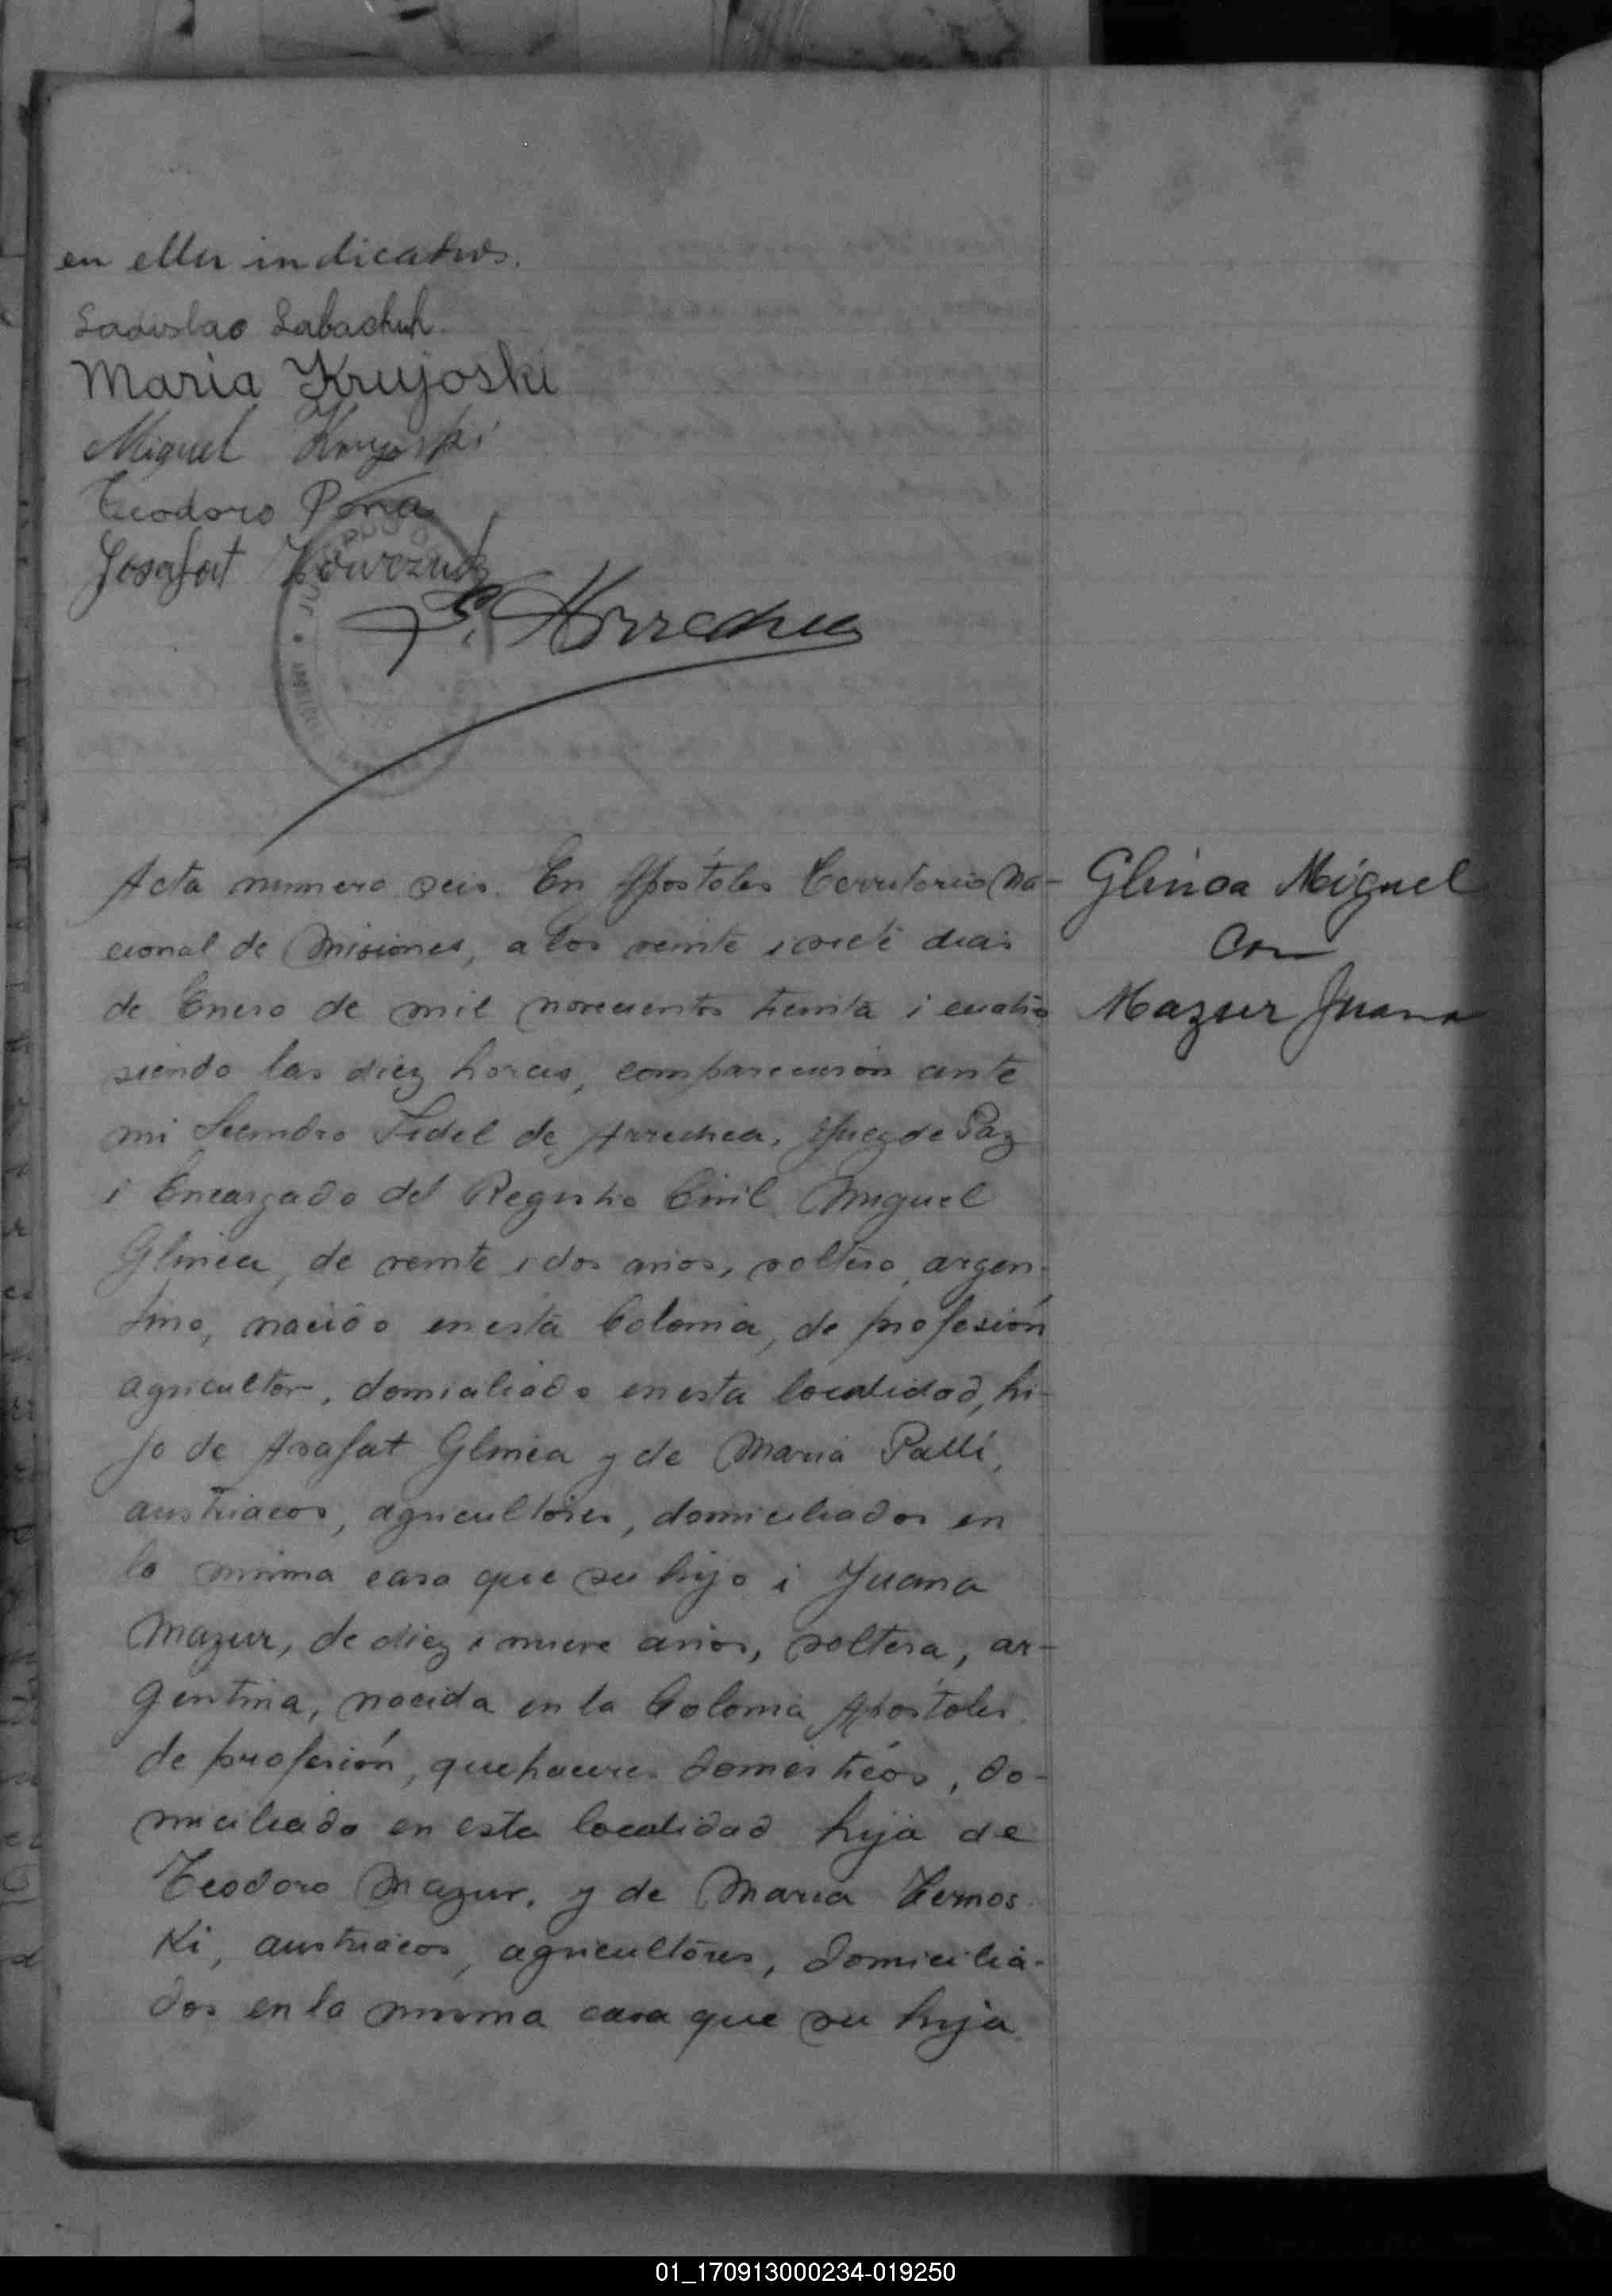 en ella indicados.
Ladislao Labachuk.
Maria Krujoski
Miguel Krujoski
Teodoro Pona
Josafat
F. Arrechea
Acta numero seis. En Apóstoles Territorio Na-
cional de Misiones, a los veinte i siete dias
de Enero de mil novecientos treinta i cuatro
siendo las diez horas, comparecieron ante
mi Leandro Fidel de Arrechea, Juez de Paz
i Encargado del Registro Civil, Miguel
Glinca, de veinte i dos años, soltero, argen-
tino, nacido en esta Colonia, de profesión
agricultor, domiciliado en esta localidad, hi-
jo de Asafat Glinca y de Maria Palli,
austriacos, agricultores, domiciliados en
la misma casa que su hijo i Juana
Mazur, de diez i nueve años, soltera, ar-
gentina, nacida en la Colonia Apóstoles
de profesión, quehaceres domésticos, do-
miciliado en esta localidad hija de
Teodoro Mazur, y de Maria Ternos
Ki, austriacos, agricultores, domicilia-
dos en la misma casa que su hija
Glinca Miguel
Con
Mazur Juana
01_170913000234-019250